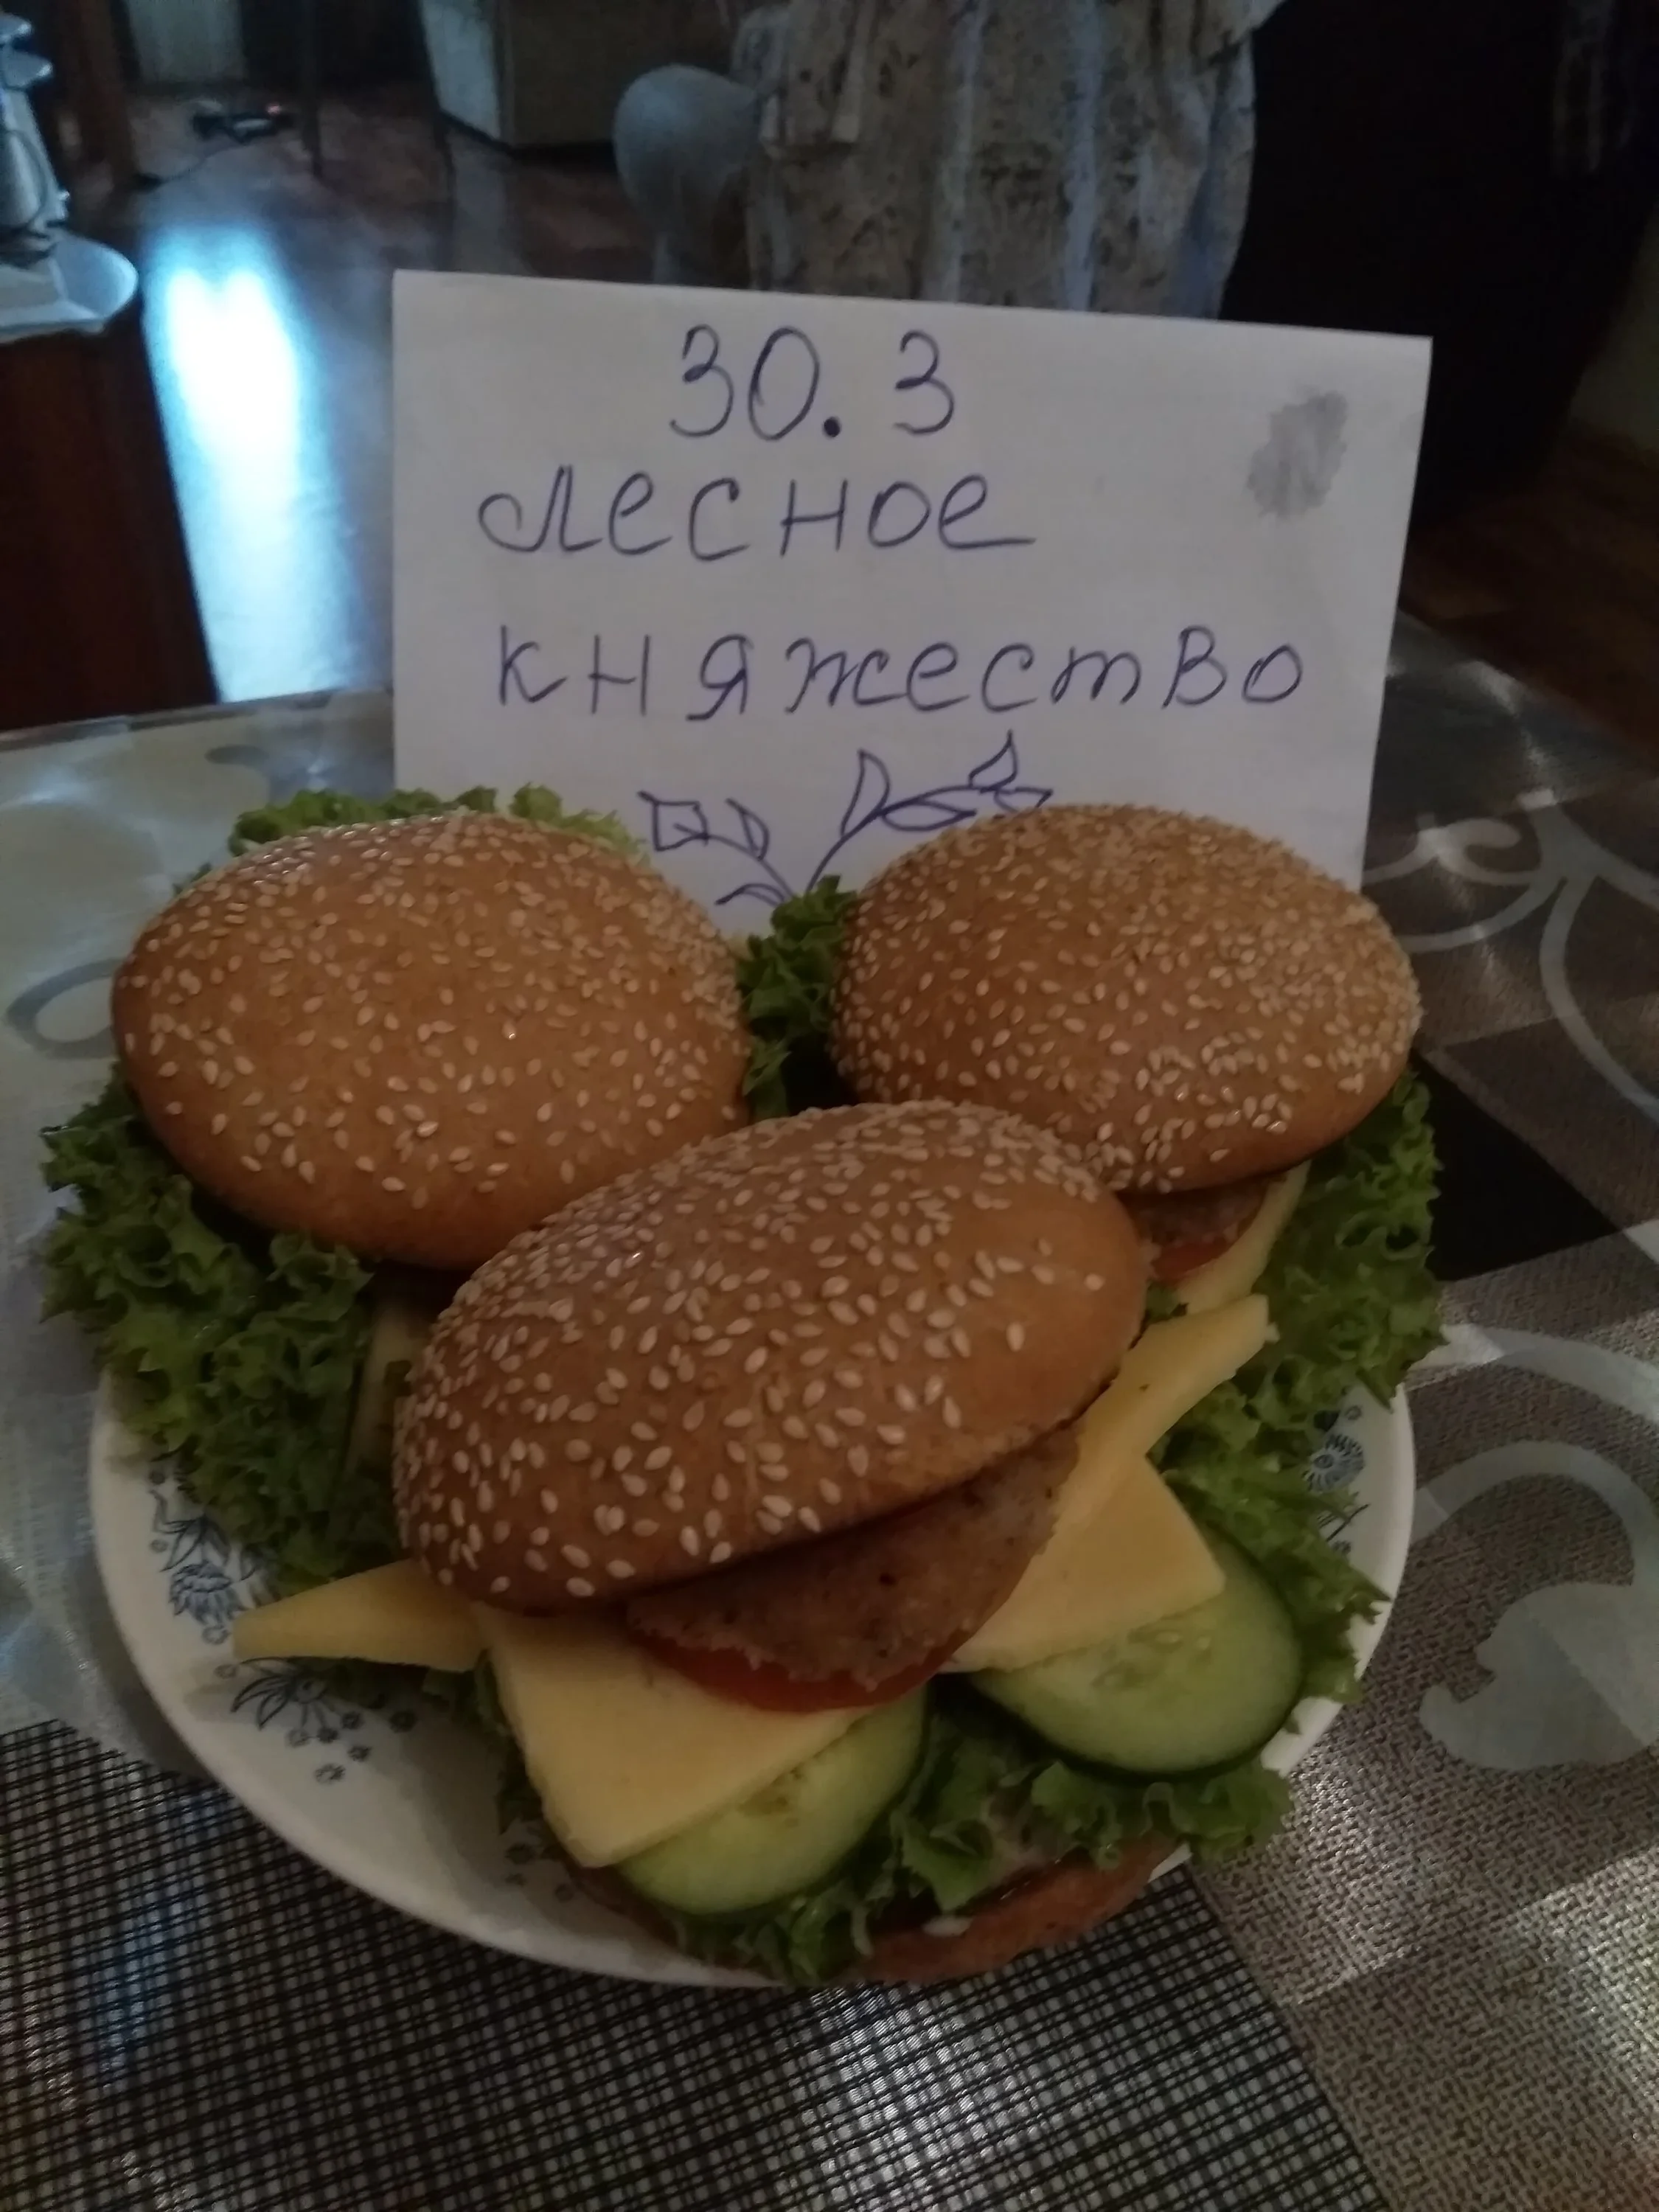 30.3
лесное
княжество